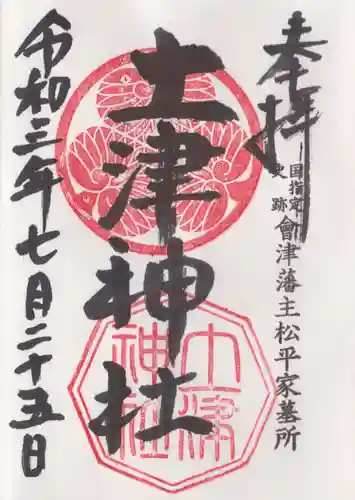 奉拝
国指定史跡
會津藩主松平家墓所
土津神社
土津神社
令和三年七月二十五日